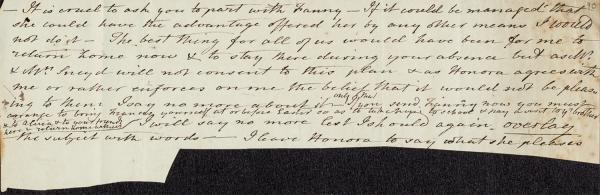 – It is cruel to ask you to part with Fanny – If it could be managed that
she could have the advantage offered her by any other means I would
not do it – The best thing for all of us would have been for me to
return home now & to stay there during your absence but as Mr
& Mrs Sneyd will not consent to this plan & as Honora agrees with
me or rather enforces on me the belief that it would not be pleas
ing to them I say no more about it – only if you send Fanny now you must
arrange to bring Francis yourself at or before Easter so as to take him to school & pay a visit to my brother
& to Aliena & to your friends
here & return home
I will say no more lest I should again overlay
the subject with words – I leave Honora to say what she pleases